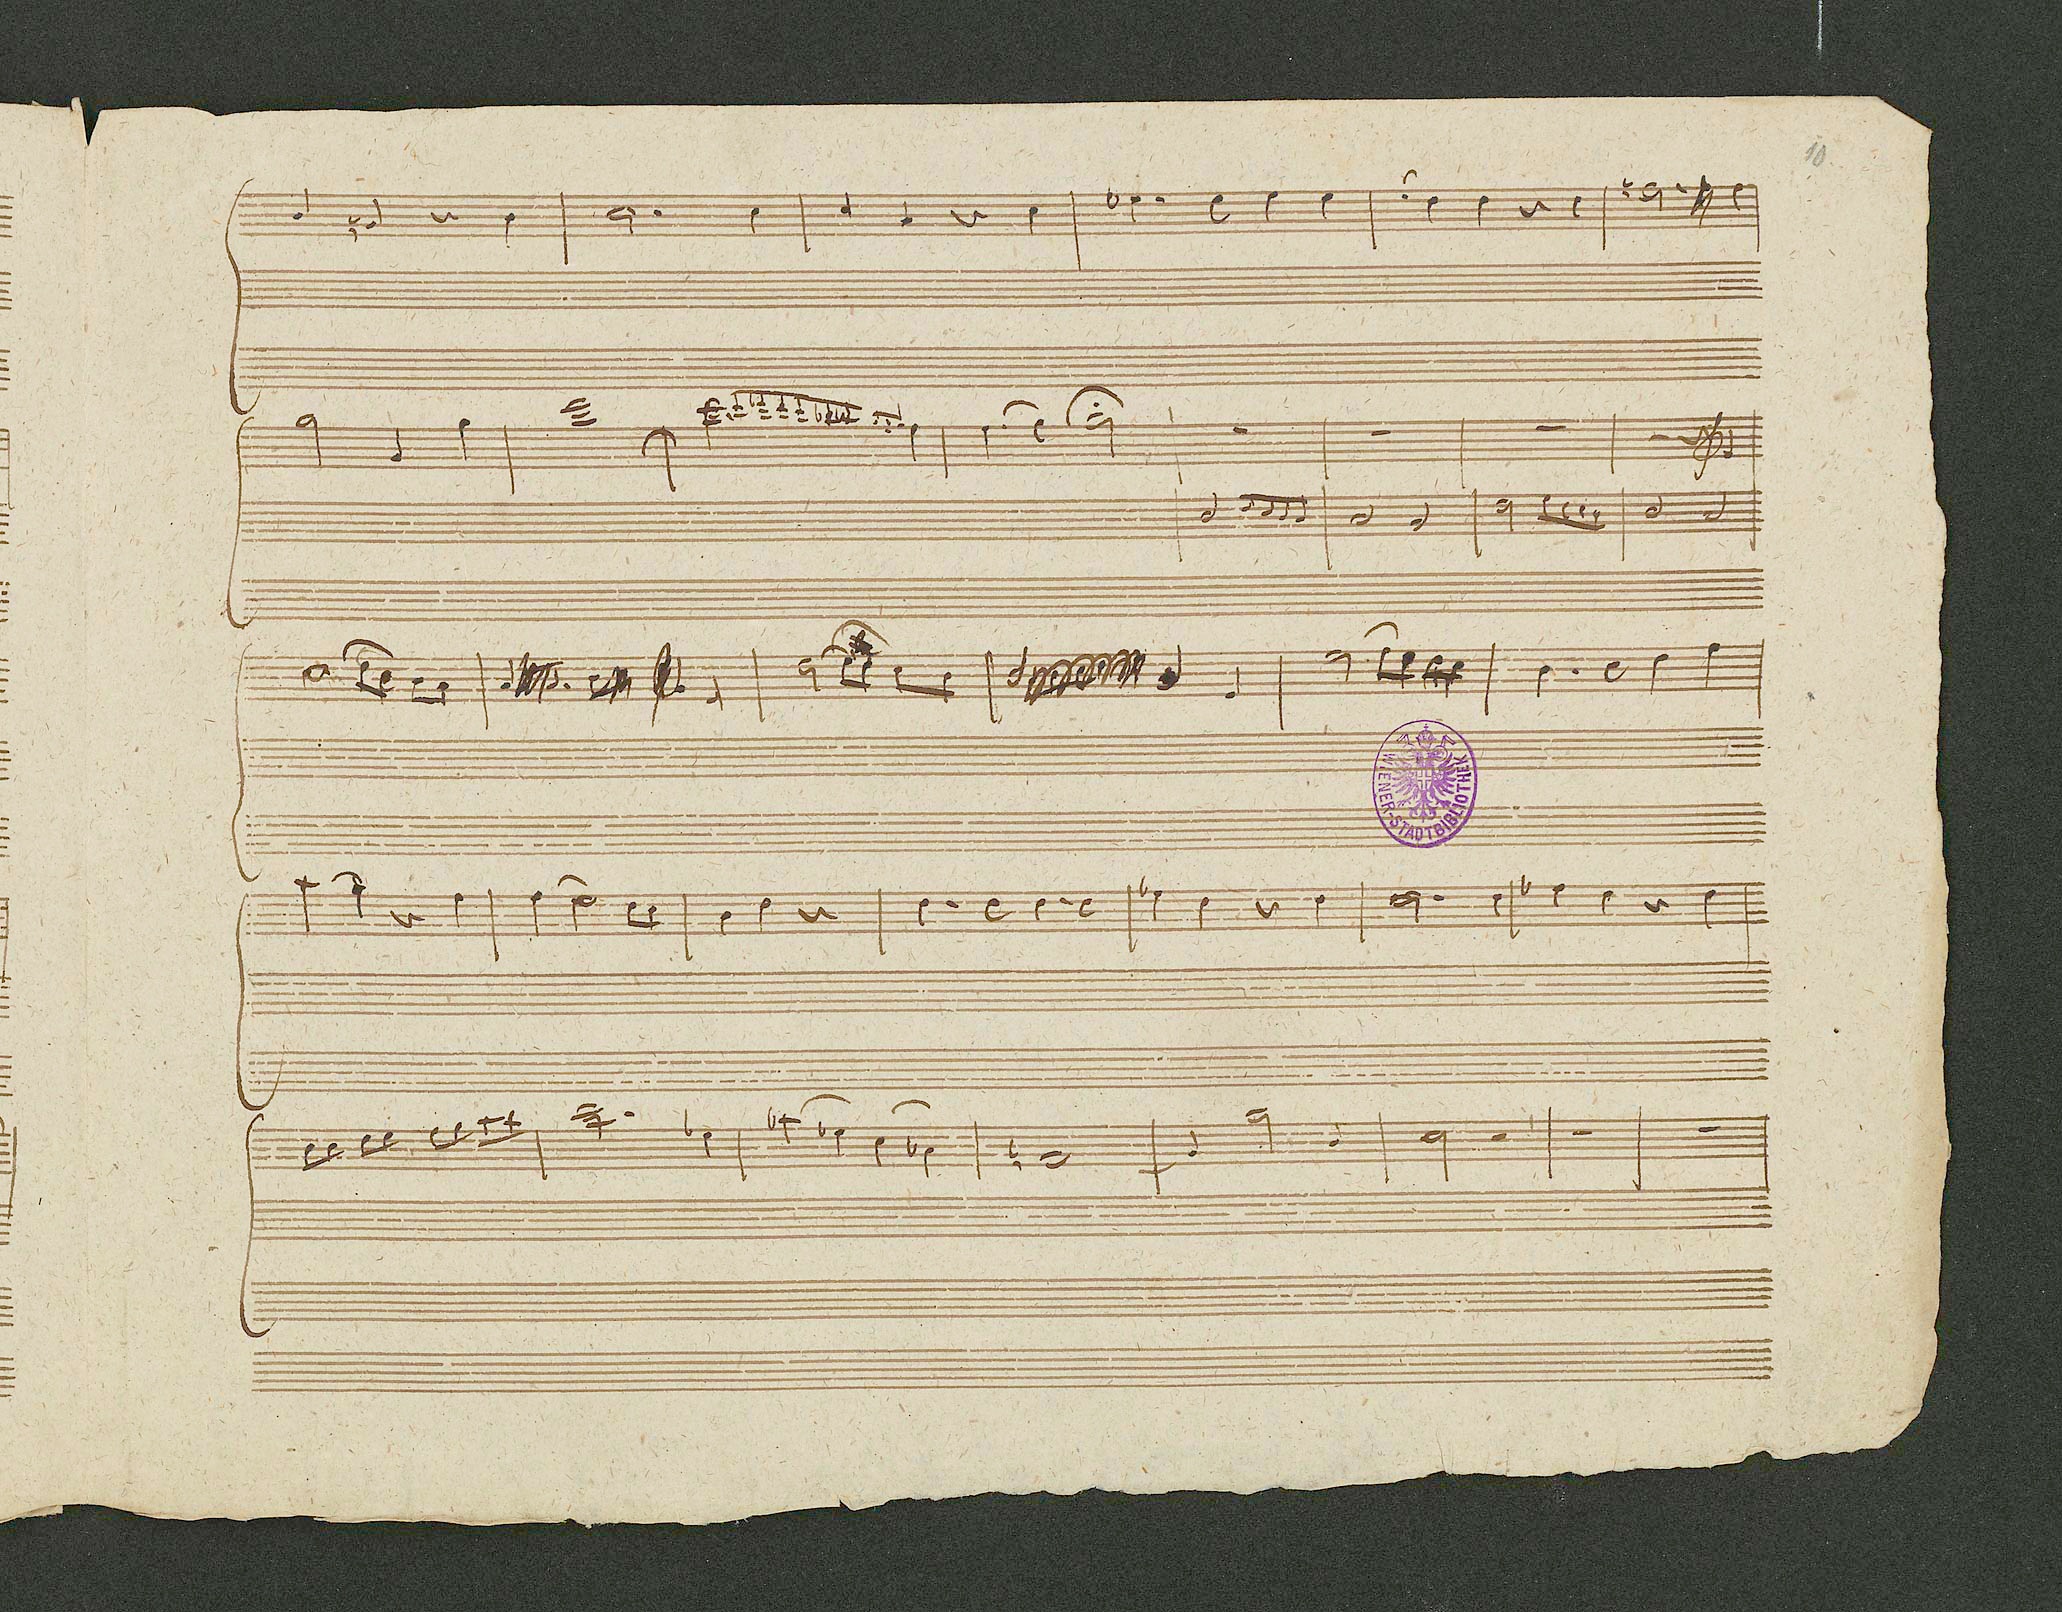 10
WIENER-STADTBIBLIOTHEK